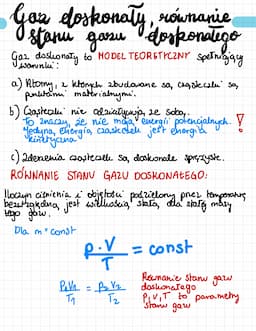 Gaz doskonały, równanie
stanu gazu doskonałego
Gaz doskonały to MODEL TEORETYCZNY spełniający
warunki:
a) Atomy, z których zbudowane są cząsteczki są
punktami materialnymi.
b) Cząsteczki nie oddziałują ze sobą.
To znaczy, że nie mają energii potencjalnych. !
Jedyną energią cząsteczek jest energia
kinetyczna
c) Zderzenia cząsteczek są doskonale sprężyste.
RÓWNANIE STANU GAZU DOSKONAŁEGO:
Iloczyn ciśnienia i objętości podzielony przez temperaturę
bezwzględną, jest wielkością stałą dla stałej masy
tego gazu.
Dla m = const
p · V / T = const
P₁V₁ / T₁ = P₂V₂ / T₂
Równanie stanu gazu
doskonałego
P, V, T to parametry
stanu gazu